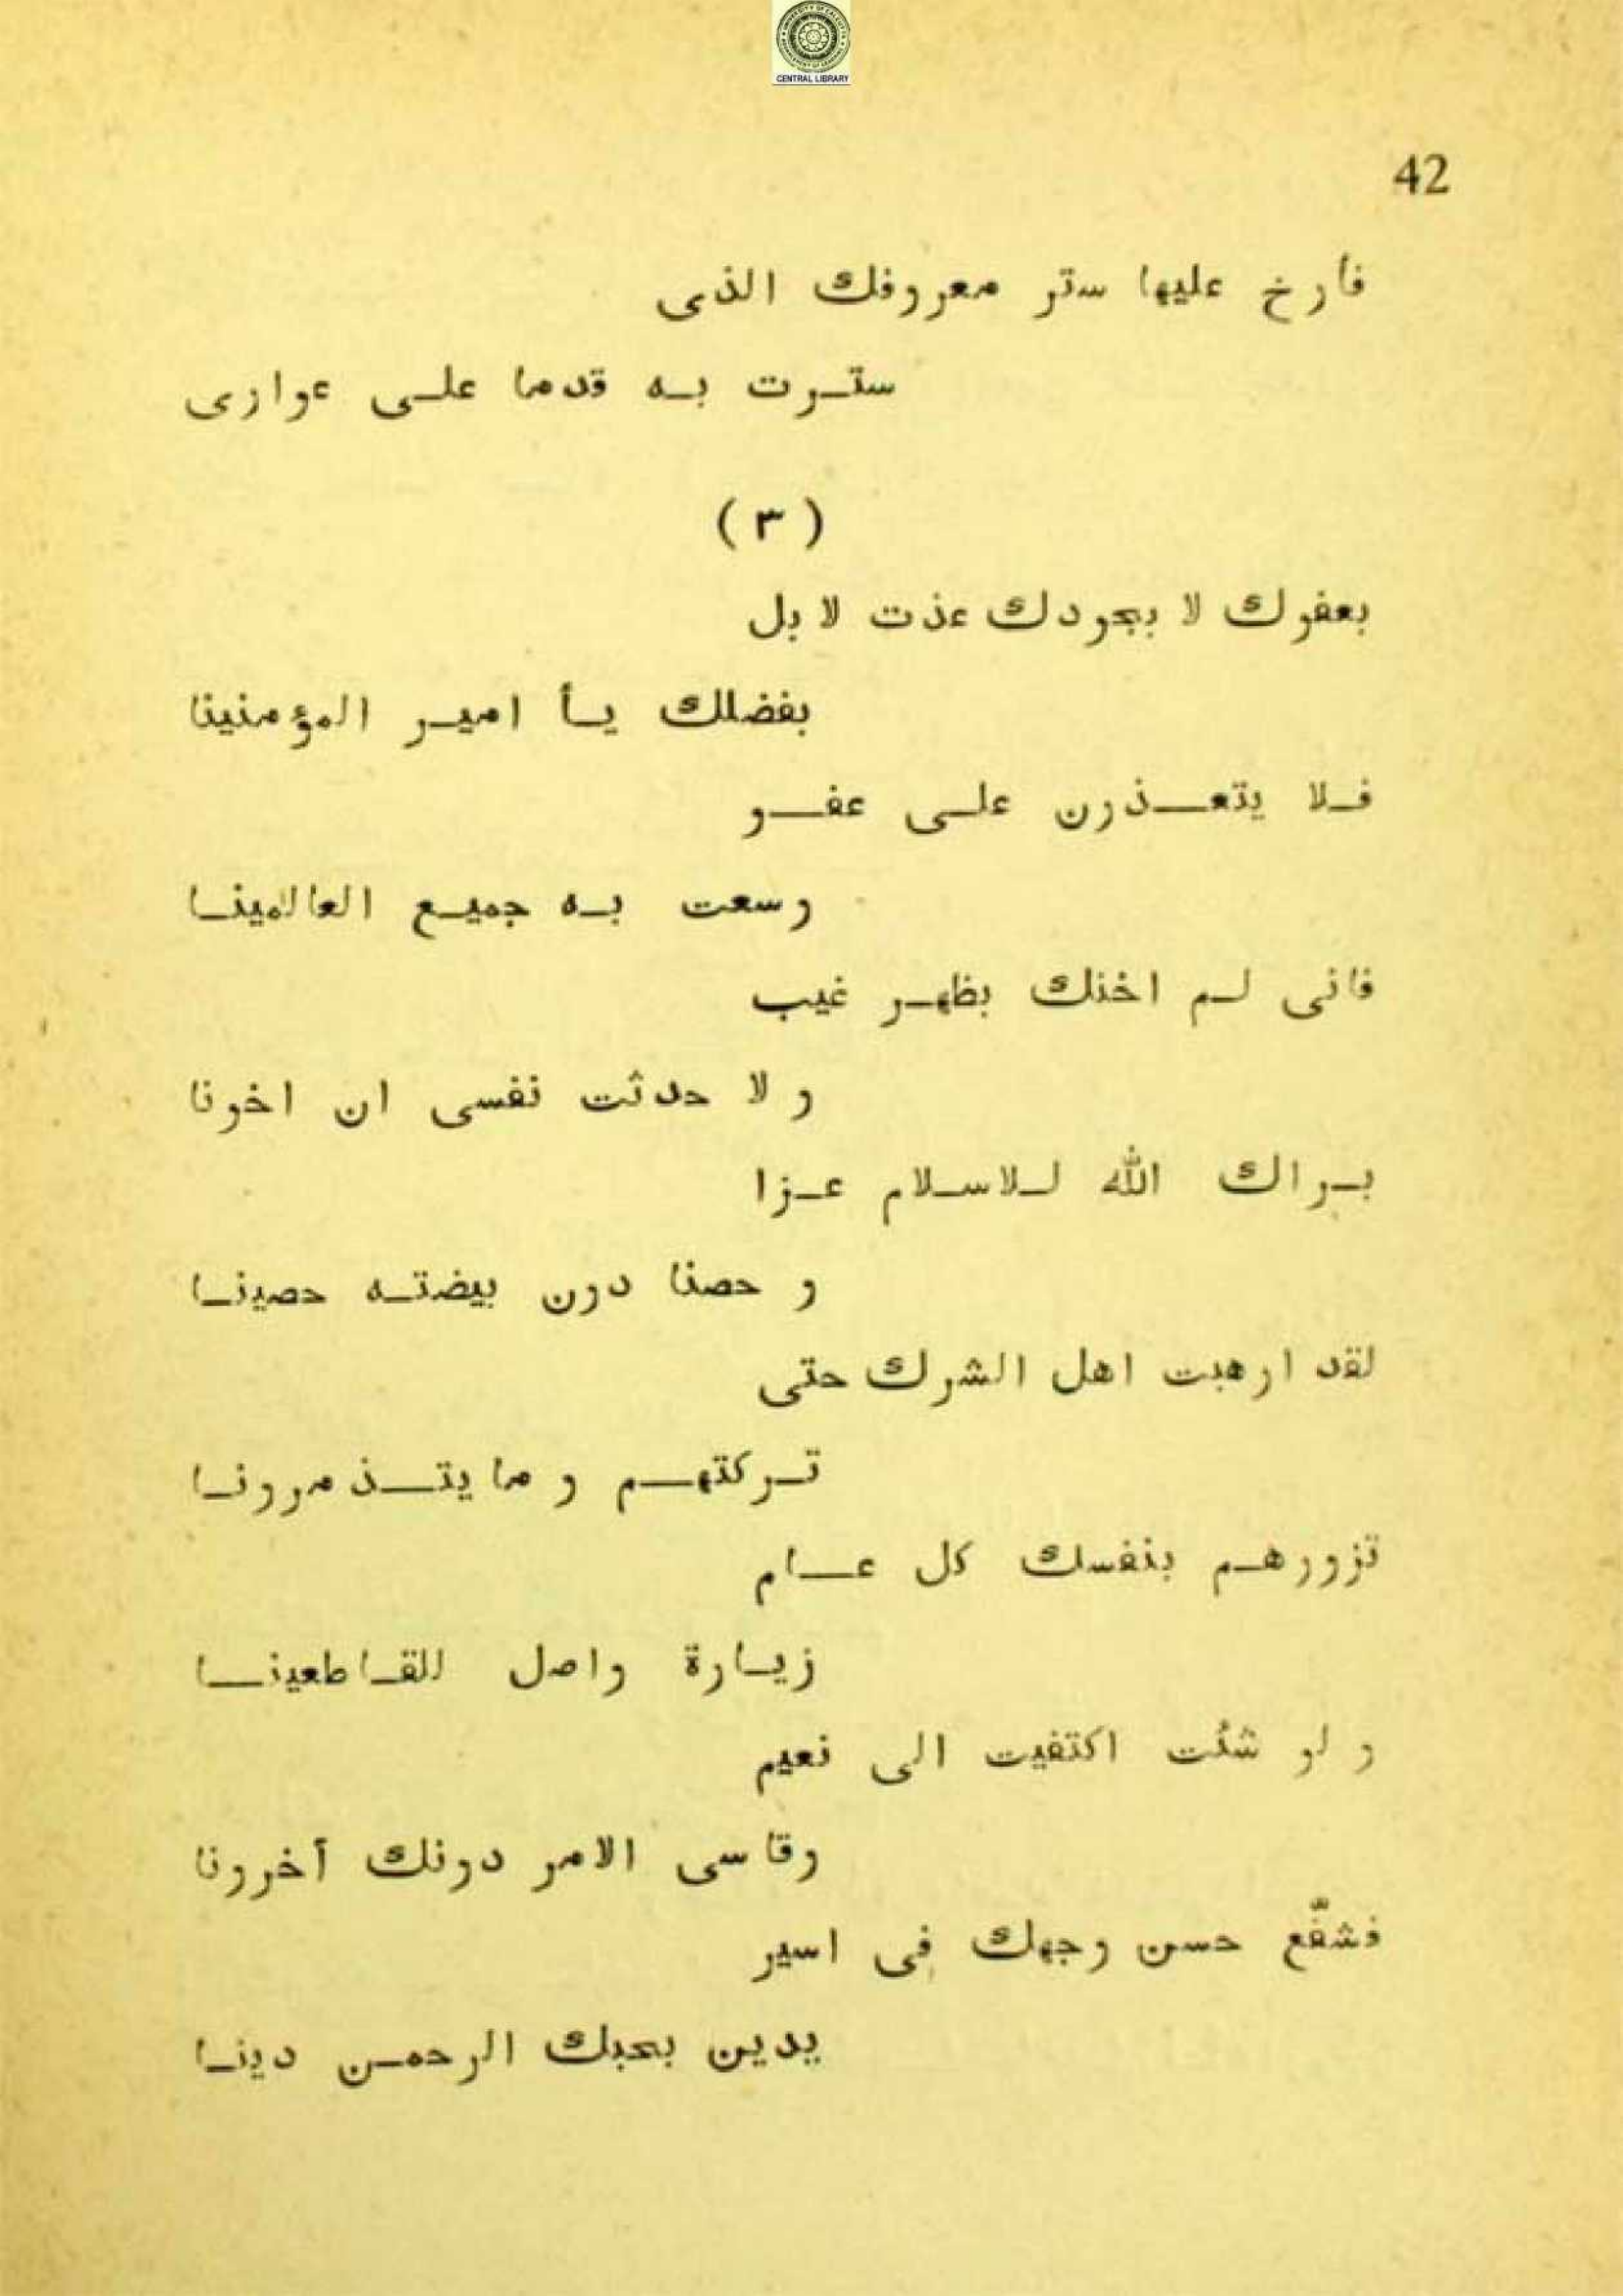 CENTRAL LIBRARY
42
فأرخ عليها ستر معروفك الذى
ستـرت بـه قدما علـى عوارى
( ٣ )
بعفوك لا بجودك عذت لا بل
بفضلك يـأ اميـر المؤمنينا
فـلا يتعـــذرن علـى عفـــو
وسعت بـه جميـع العالمينـا
فانى لـم اخنك بظهـر غيب
و لا حدثت نفسى ان اخونا
بـراك الله لـلاسـلام عـزا
و حصنا دون بيضتـه حصينـا
لقد ارهبت اهل الشرك حتى
تـركتهـــم و ما يتـــذمرونـا
تزورهـم بنفسك كل عـــام
زيـارة واصل للقـاطعينـــا
و لو شئت اكتفيت الى نعيم
وقاسى الامر دونك أخرونا
فشفّع حسن وجهك فى اسير
يدين بحبك الرحمـن دينـا